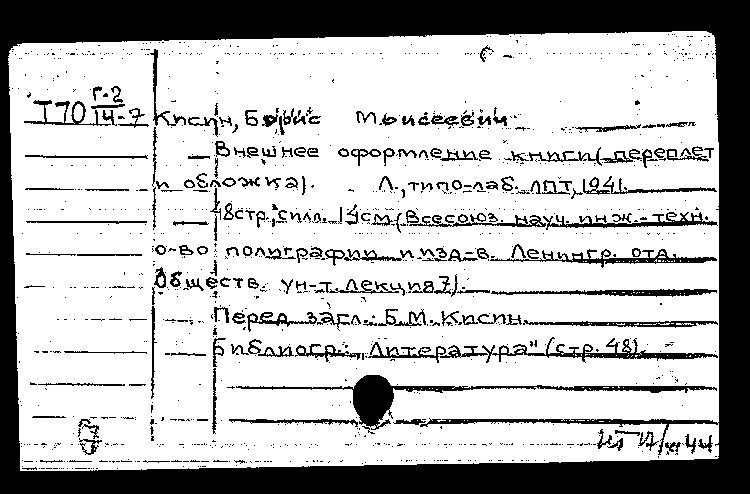 Т70 Г-2/14-7 Кисин, Борис Моисеевич
Внешнее оформление книги (переплет
и обложка). Л., типо-лаб. ЛПТ, 1941.
48 стр., с илл. 14см (Всесоюз. науч. инж.-техн.
о-во полиграфии и изд-в. Ленингр. отд.
Обществ. ун-т. Лекция 7).
Перед загл.: Б.М. Кисин.
Библиогр.: „Литература" (стр. 48).